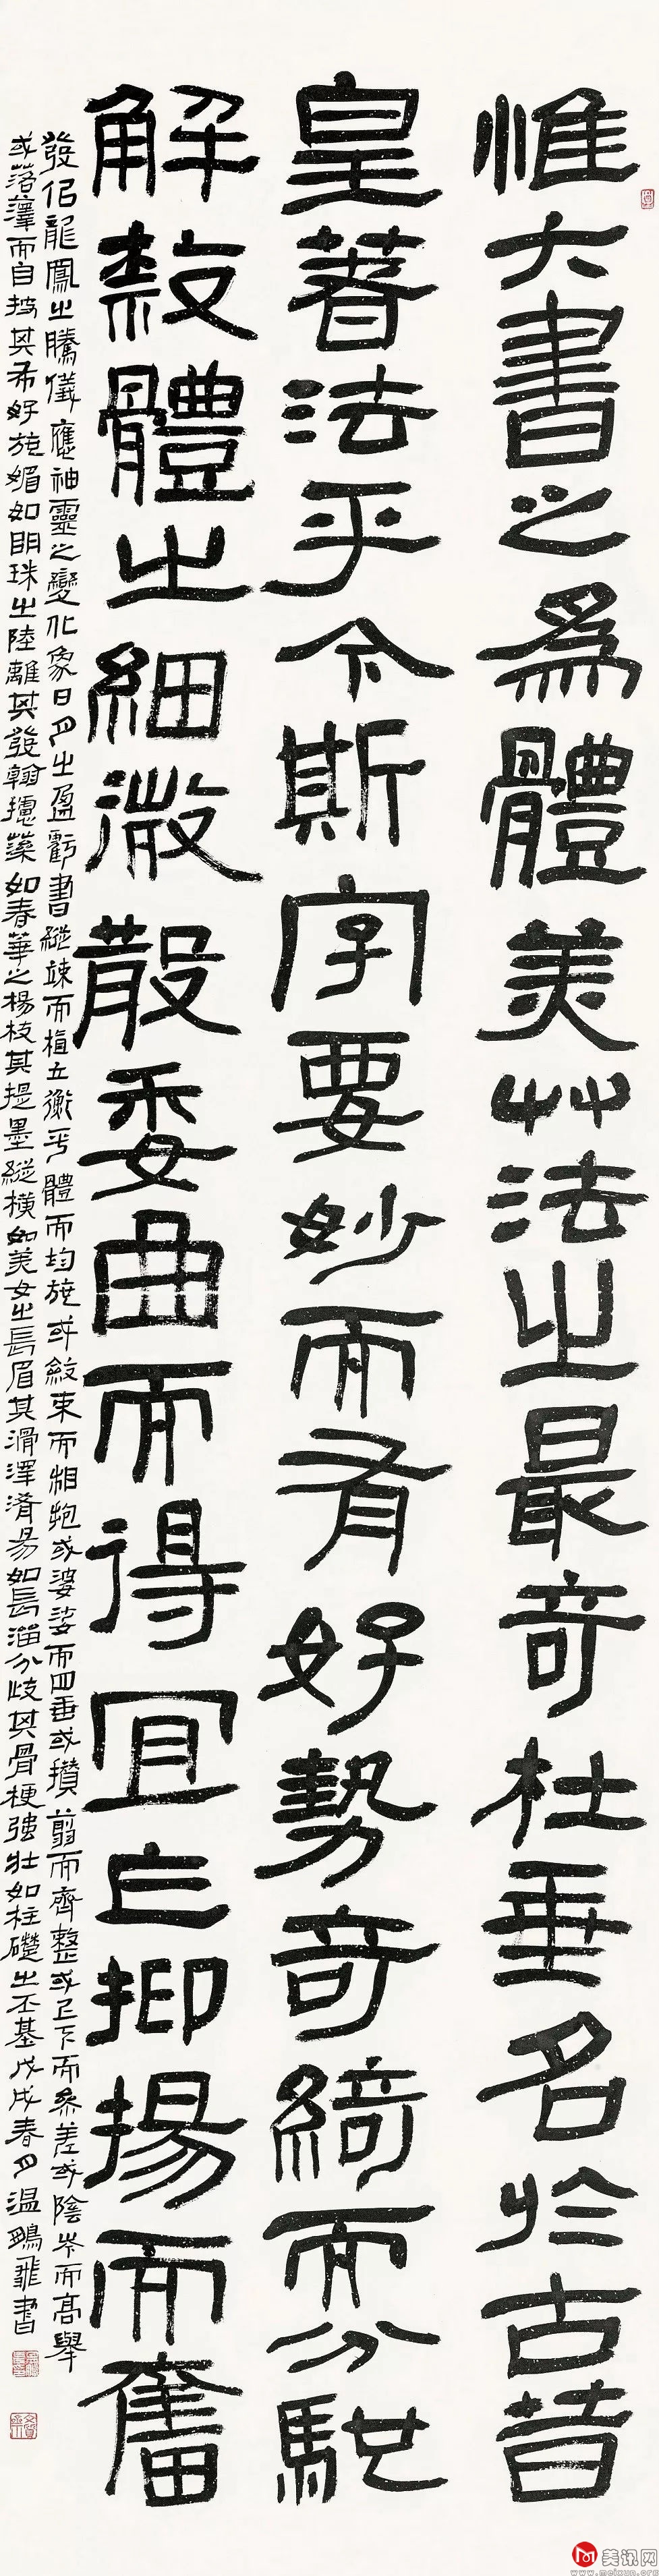 惟六書之為體美艸法之最奇杜垂名於古昔
皇著法乎今斯字要妙而有好勢奇綺而分馳
解㪔體之細微散委曲而得宜乍抑揚而奮
發佀龍鳳之騰儀應神靈之變化象日月之盈虧書縱竦而植立衡平體而均施或斂束而相抱或婆娑而四垂或攢翦而齊整或上下而參差或陰岑而高舉
或落籜而自披其布好施媚如明珠之陸離其發翰攄藻如春華之楊枝其提墨縱橫如美女之長眉其滑澤淆易如長溜分歧其骨梗強壯如柱礎之丕基戊戌春月溫鵬飛書
美讯网
www.meixun.org